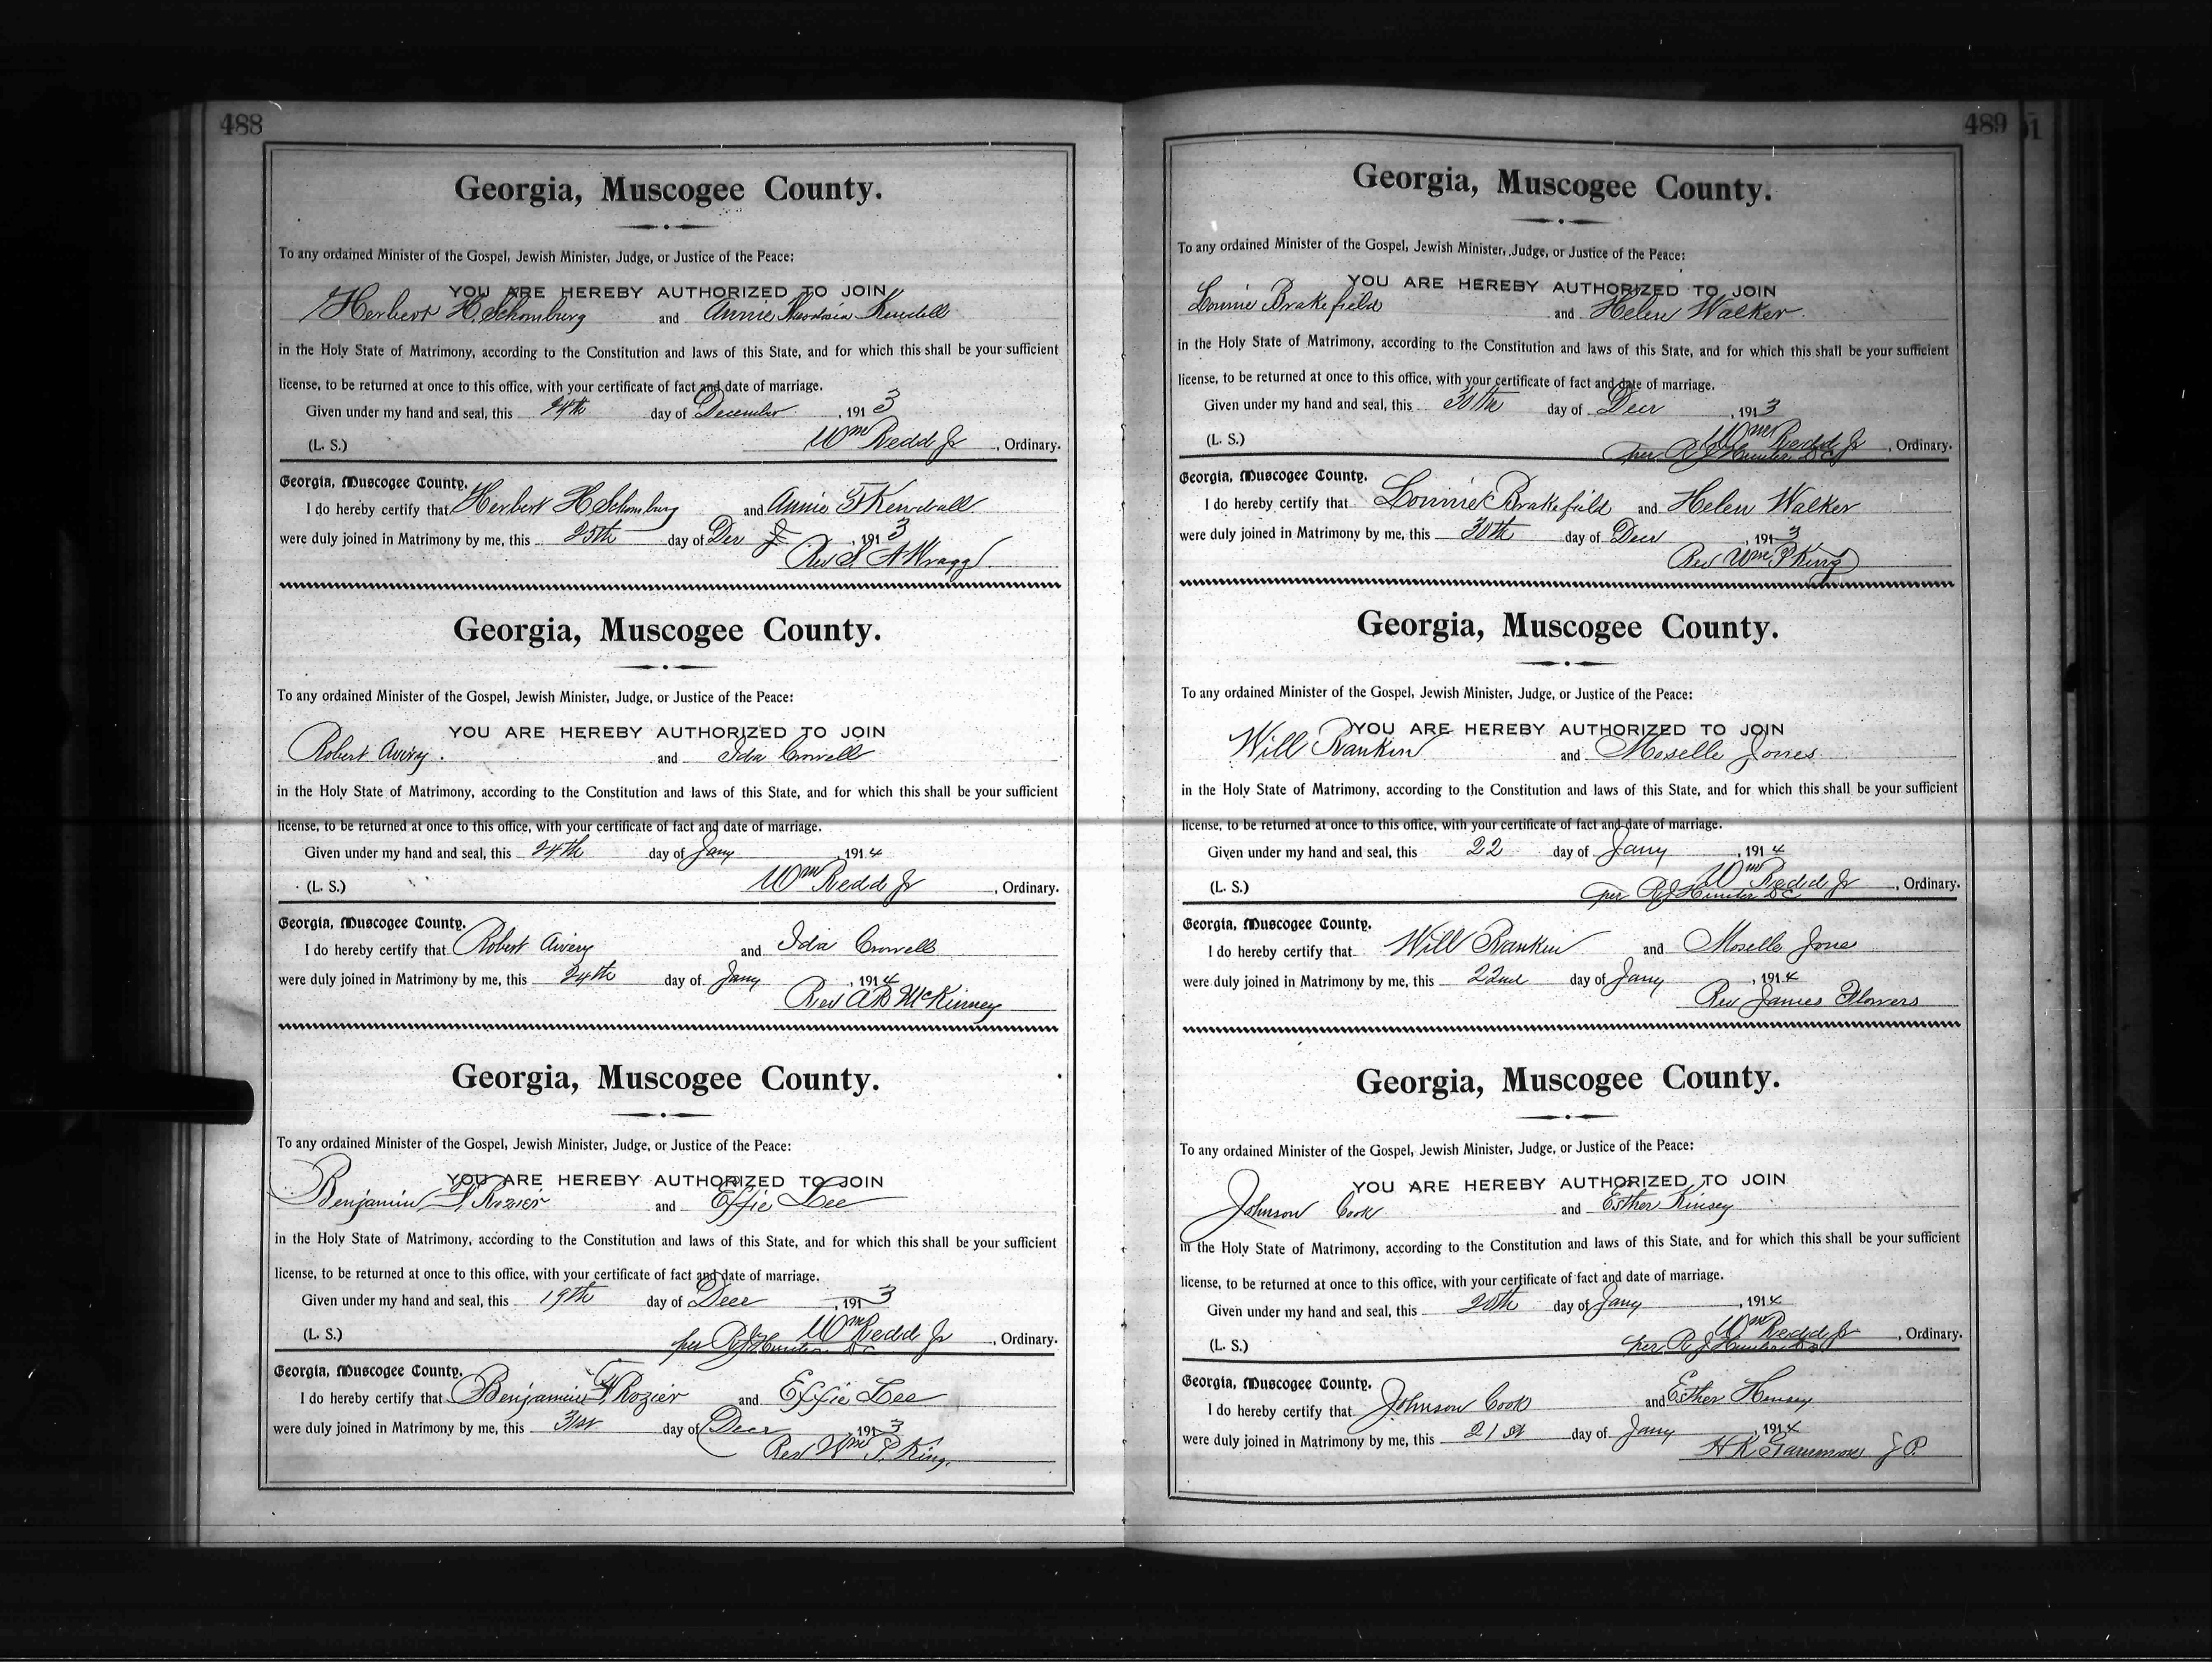 488
Georgia, Muscogee County.
To any ordained Minister of the Gospel, Jewish Minister, Judge, or Justice of the Peace:
YOU ARE HEREBY AUTHORIZED TO JOIN
Herbert H. Schomburg and Annie Kendell
in the Holy State of Matrimony, according to the Constitution and laws of this State, and for which this shall be your sufficient
license, to be returned at once to this office, with your certificate of fact and date of marriage.
Given under my hand and seal, this 24th day of December, 1913
(L. S.) Wm Redd Jr, Ordinary.
Georgia, Muscogee County.
I do hereby certify that Herbert H Schomburg and Annie F Kendall
were duly joined in Matrimony by me, this 25th day of Dec, 1913
Rev S. A Wragg
Georgia, Muscogee County.
To any ordained Minister of the Gospel, Jewish Minister, Judge, or Justice of the Peace:
YOU ARE HEREBY AUTHORIZED TO JOIN
Robert Avery. and Ida Crowell
in the Holy State of Matrimony, according to the Constitution and laws of this State, and for which this shall be your sufficient
license, to be returned at once to this office, with your certificate of fact and date of marriage.
Given under my hand and seal, this 24th day of Jany, 1914
(L. S.) Wm Redd Jr, Ordinary.
Georgia, Muscogee County.
I do hereby certify that Robert Avery and Ida Crowell
were duly joined in Matrimony by me, this 24th day of Jany, 1914
Rev A B McKinney
Georgia, Muscogee County.
To any ordained Minister of the Gospel, Jewish Minister, Judge, or Justice of the Peace:
YOU ARE HEREBY AUTHORIZED TO JOIN
Benjamin F. Rozier and Effie Lee
in the Holy State of Matrimony, according to the Constitution and laws of this State, and for which this shall be your sufficient
license, to be returned at once to this office, with your certificate of fact and date of marriage.
Given under my hand and seal, this 19th day of Decr, 1913
(L. S.) Wm Redd Jr, Ordinary.
per R J Hunter D C
Georgia, Muscogee County.
I do hereby certify that Benjamin F. Rozier and Effie Lee
were duly joined in Matrimony by me, this 31st day of Decr, 1913
Rev Wm P. King.
489
Georgia, Muscogee County.
To any ordained Minister of the Gospel, Jewish Minister, Judge, or Justice of the Peace:
YOU ARE HEREBY AUTHORIZED TO JOIN
Lonnie Brakefield and Helen Walker.
in the Holy State of Matrimony, according to the Constitution and laws of this State, and for which this shall be your sufficient
license, to be returned at once to this office, with your certificate of fact and date of marriage.
Given under my hand and seal, this 30th day of Decr, 1913
(L. S.) Wm Redd Jr, Ordinary.
per R J Hunter D C
Georgia, Muscogee County.
I do hereby certify that Lonnie Brakefield and Helen Walker
were duly joined in Matrimony by me, this 30th day of Decr, 1913
Rev Wm P King
Georgia, Muscogee County.
To any ordained Minister of the Gospel, Jewish Minister, Judge, or Justice of the Peace:
YOU ARE HEREBY AUTHORIZED TO JOIN
Will Rankin and Moselle Jones
in the Holy State of Matrimony, according to the Constitution and laws of this State, and for which this shall be your sufficient
license, to be returned at once to this office, with your certificate of fact and date of marriage.
Given under my hand and seal, this 22 day of Jany, 1914
(L. S.) Wm Redd Jr, Ordinary.
per R J Hunter D C
Georgia, Muscogee County.
I do hereby certify that Will Rankin and Moselle Jones
were duly joined in Matrimony by me, this 22nd day of Jany, 1914
Rev James Flowers
Georgia, Muscogee County.
To any ordained Minister of the Gospel, Jewish Minister, Judge, or Justice of the Peace:
YOU ARE HEREBY AUTHORIZED TO JOIN
Johnson Cook and Esther Kinsey
in the Holy State of Matrimony, according to the Constitution and laws of this State, and for which this shall be your sufficient
license, to be returned at once to this office, with your certificate of fact and date of marriage.
Given under my hand and seal, this 20th day of Jany, 1914
(L. S.) Wm Redd Jr, Ordinary.
per R J Hunter D C
Georgia, Muscogee County.
I do hereby certify that Johnson Cook and Esther
were duly joined in Matrimony by me, this 21st day of Jany, 1914
H K J P.